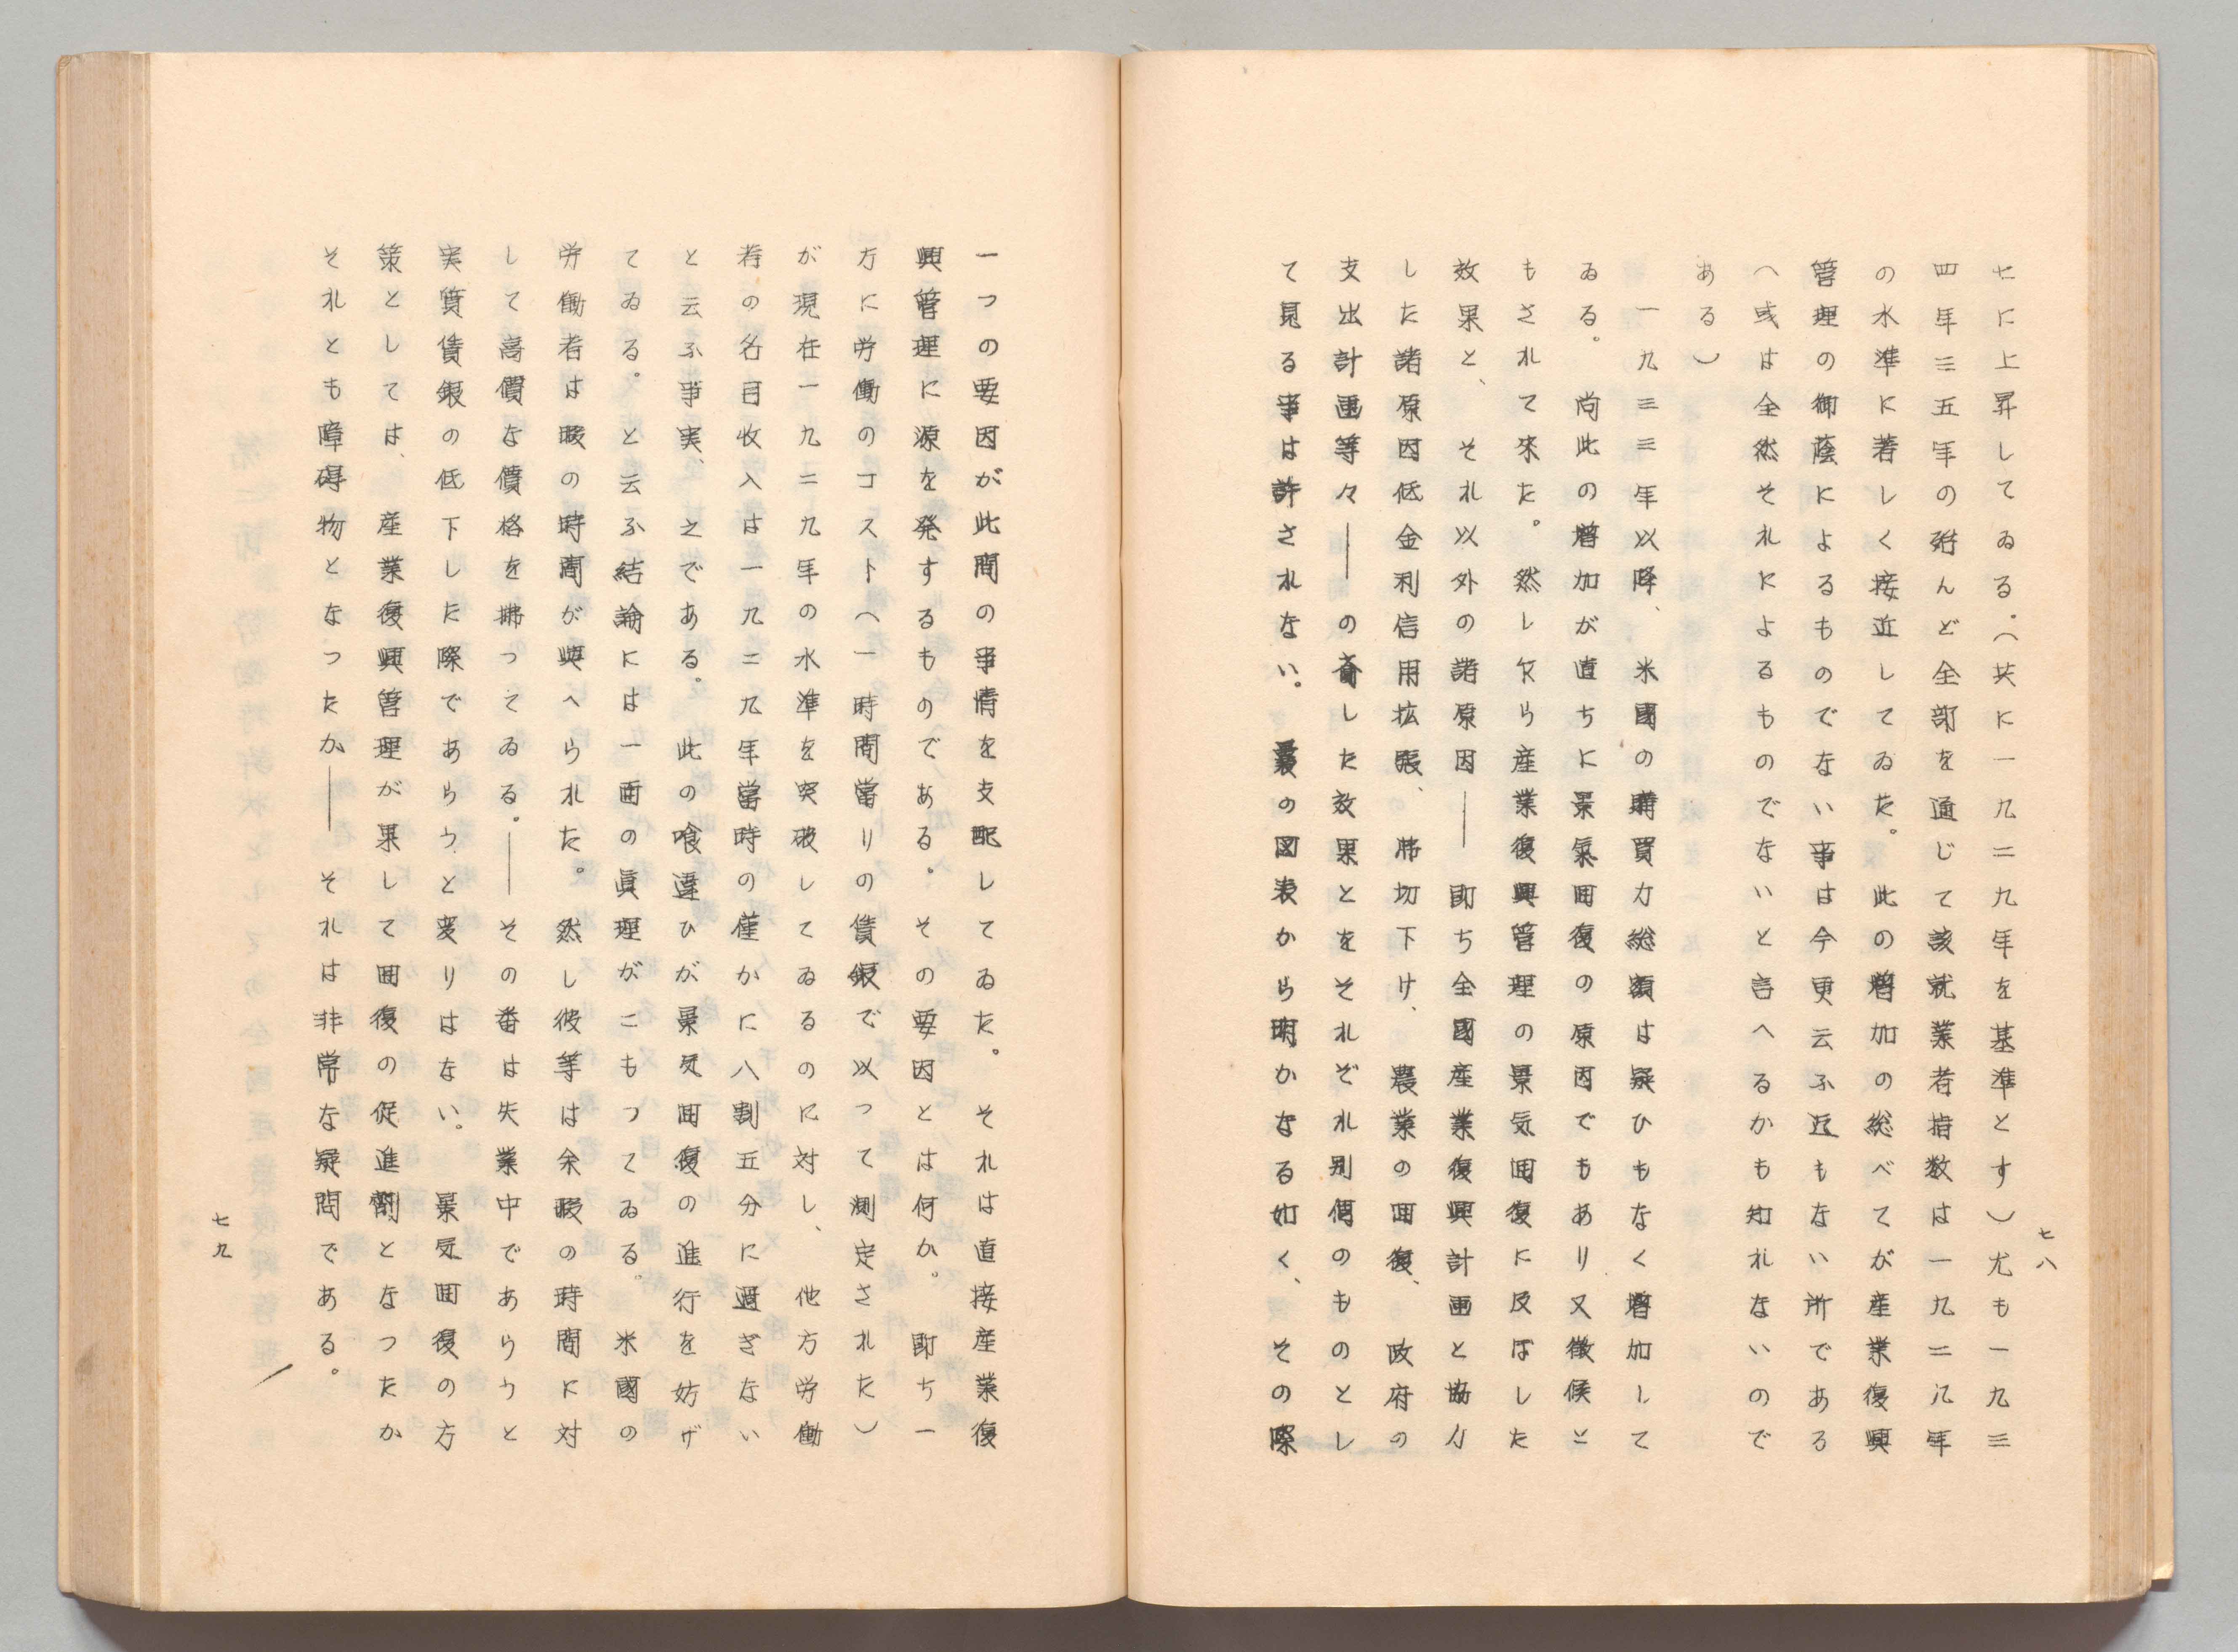 七八
七に上昇してゐる.(共に一九二九年を基準とす)尤も一九三
四年三五年の殆んど全部を通じて該就業者指数は一九二八年
の水準に著しく接近してゐた。此の増加の総べてが産業復興
管理の御蔭によるものでない事は今更云ふ迄もない所である
(或は全然それによるものでないと言へるかも知れないので
ある)
一九三三年以降、米國の購買力総額は疑ひもなく増加して
ゐる。尚此の増加が直ちに景氣囬復の原因でもあり又徴候と
もされて來た。然し乍ら産業復興管理の景気囬復に及ぼした
效果と、それ以外の諸原因――即ち全國産業復興計画と協力
した諸原因低金利信用拡張、弗切下け、農業の囬復、政府の
支出計画等々――の齎した效果とをそれぞれ別個のものとし
て見る事は許されない。最の図表から明かなる如く、その際
一つの要因が此間の事情を支配してゐた。それは直接産業復
興管理に源を発するものである。その要因とは何か。即ち一
方に労働のコスト(一時間當りの賃銀で以って測定された)
が現在一九二九年の水準を突破してゐるのに対し、他方労働
者の名目收入は一九二九年當時の僅かに八割五分に過ぎない
と云ふ事実、之である。此の喰違ひが景気囬復の進行を妨げ
てゐる。と云ふ結論には一面の眞理がこもってゐる。米國の
労働者は暇の時間が與へられた。然し彼等は余暇の時間に対
して高價な價格を拂ってゐる。――その番は失業中であらうと
実質賃銀の低下した際であらうと変りはない。景気囬復の方
策としては、産業復興管理が果して囬復の促進劑となつたか
それとも障碍物となつたか――それは非常な疑問である。
七九